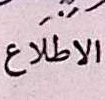 الاطلاع